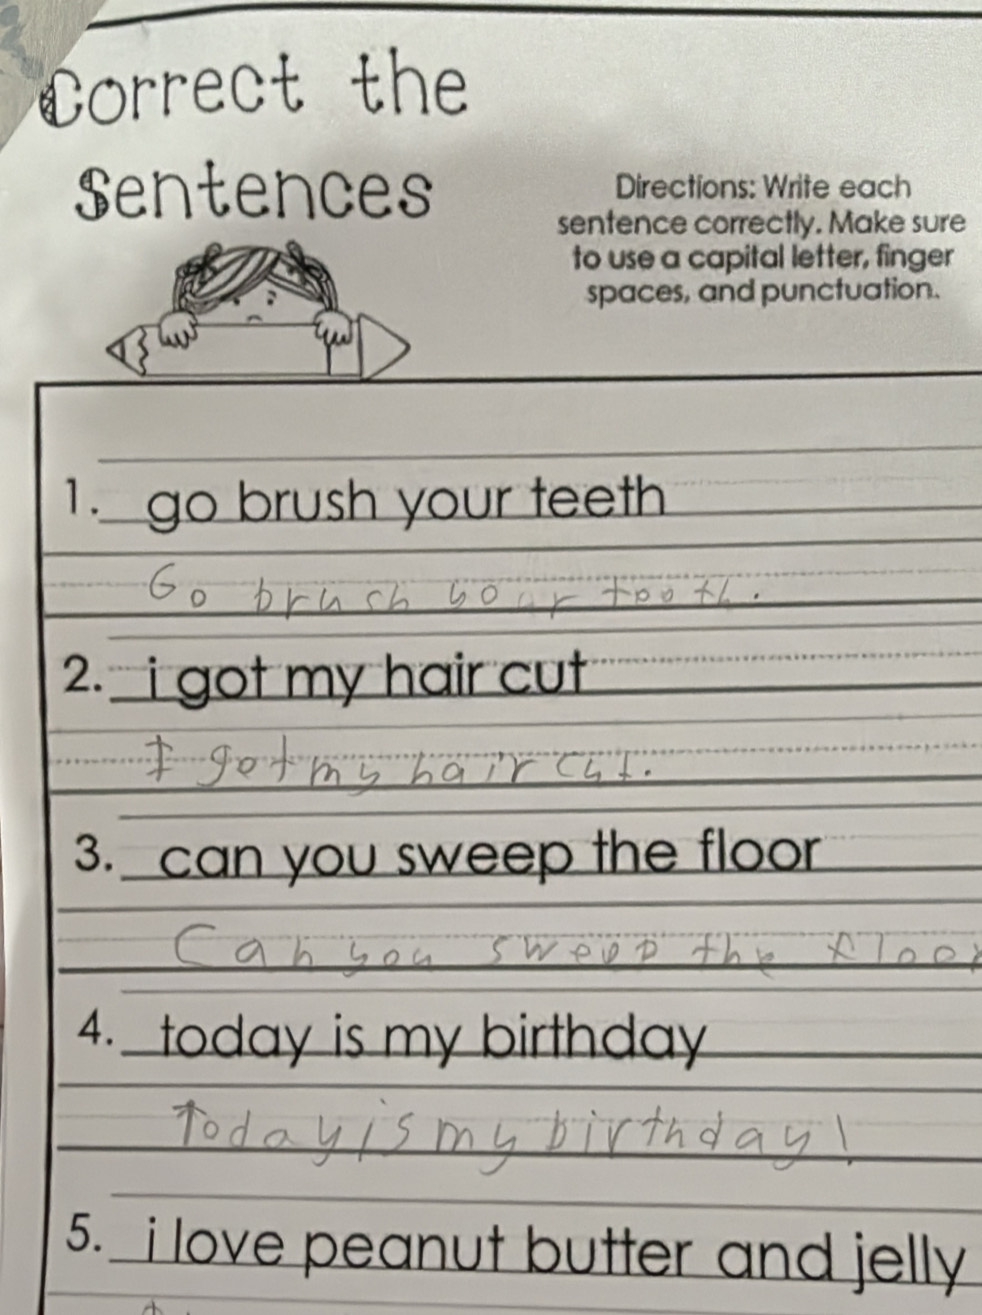 Correct the
Sentences
Directions: Write each
sentence correctly. Make sure
to use a capital letter, finger
spaces, and punctuation.
1. go brush your teeth
Go brush your tooth.
2. i got my hair cut
I got my hair cut.
3. can you sweep the floor
Can you sweep the floor
4. today is my birthday
Today is my birthday!
5. i love peanut butter and jelly